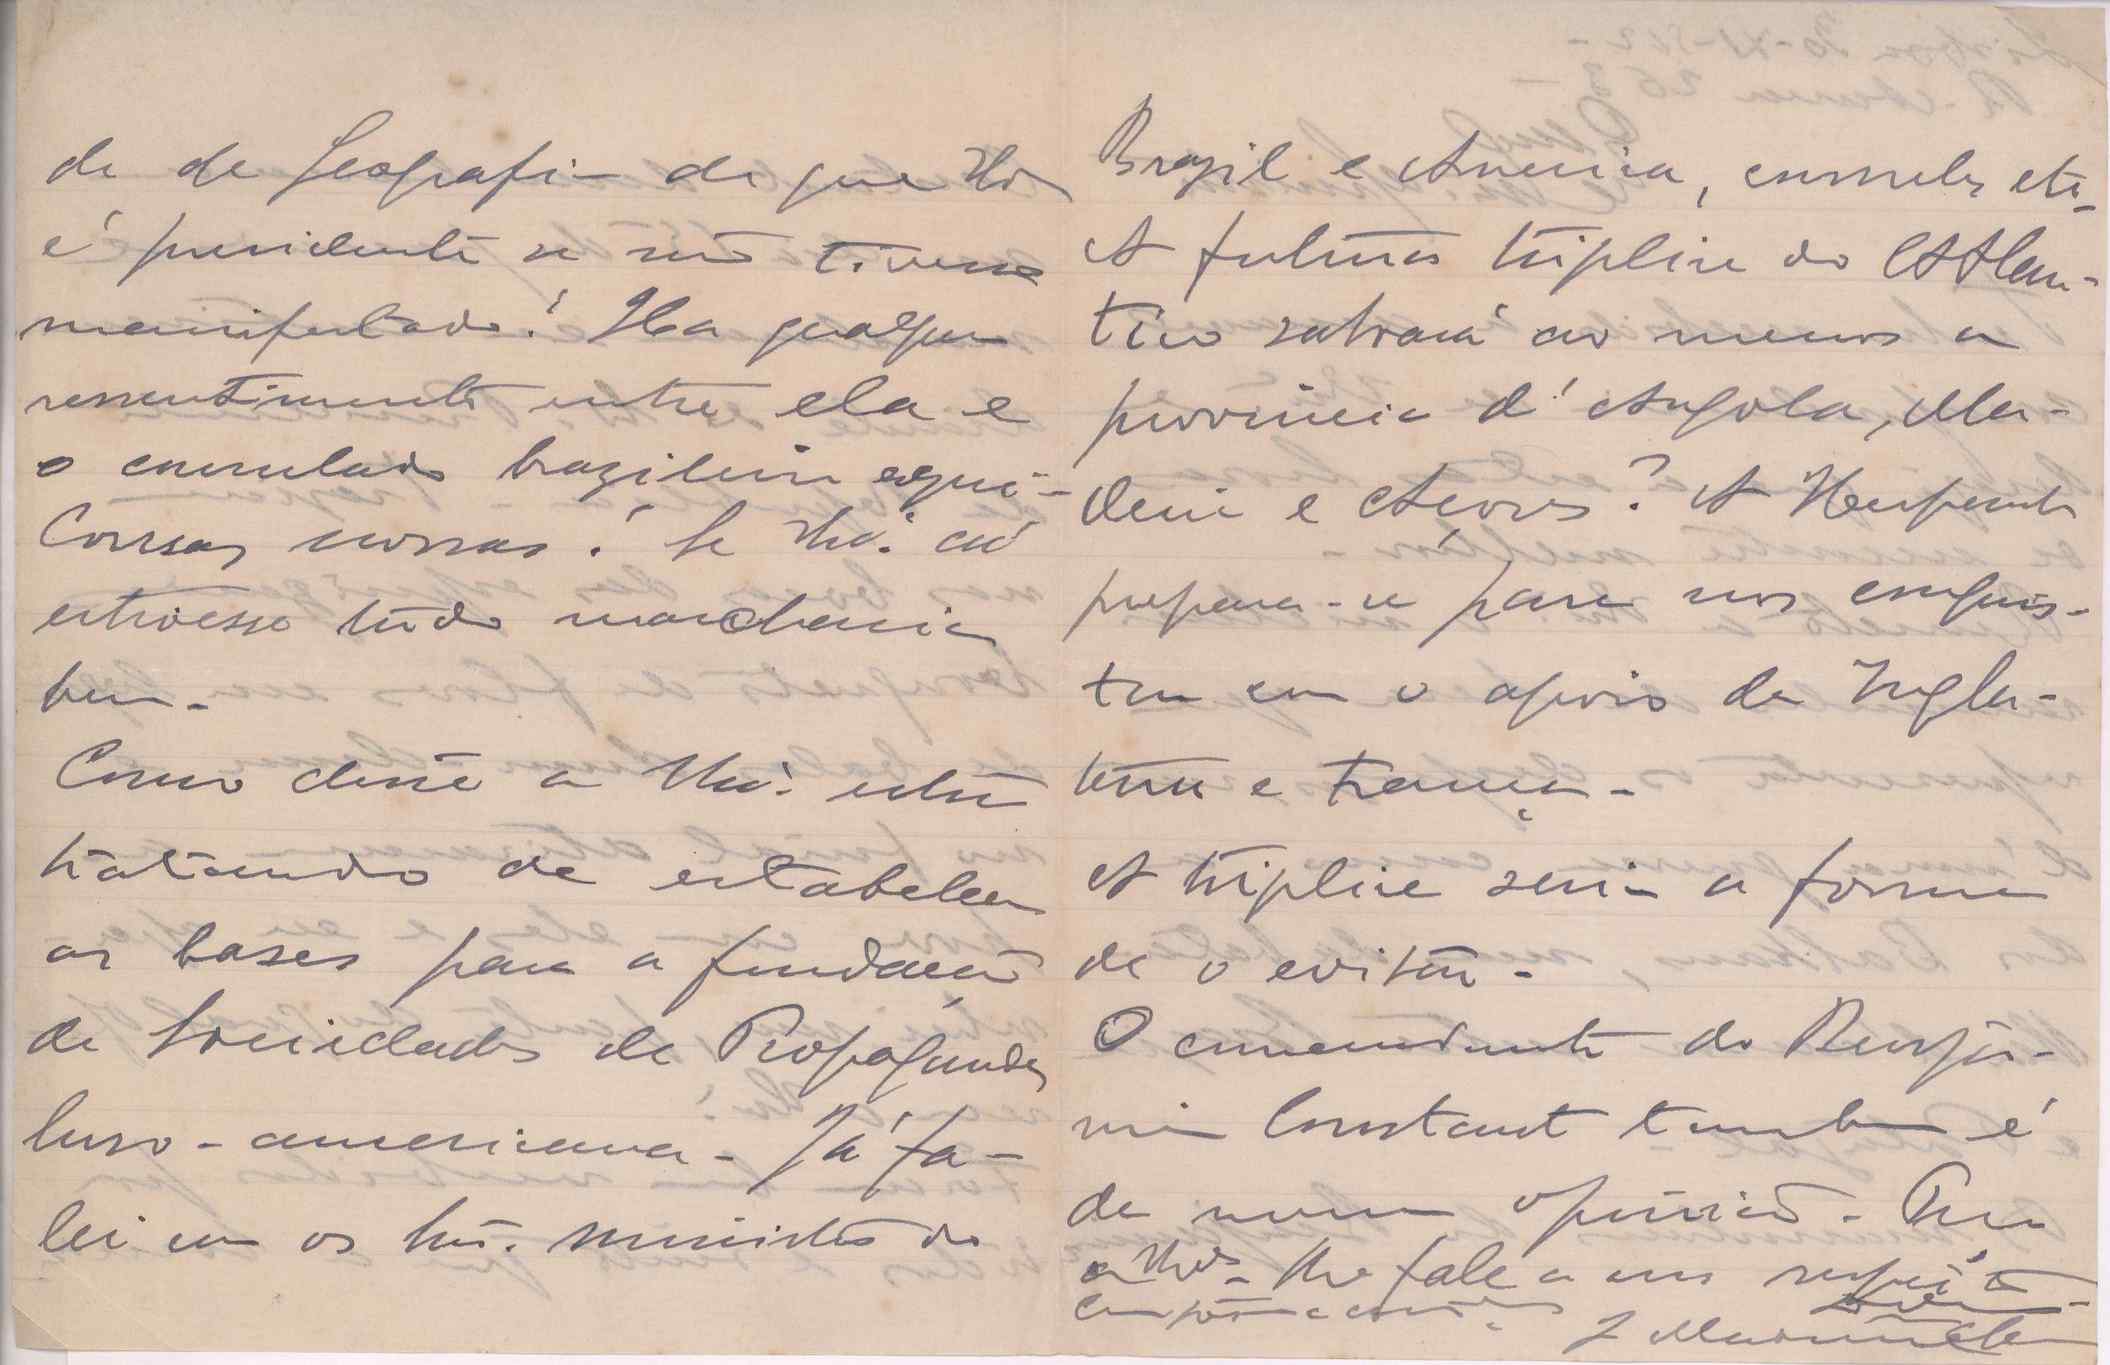 de de Geografia de que V. Ex.
é presidente se não tivesse
manifestado! Ha qualquer
ressentimento entre ela e
o consulado brazileiro aqui -
Cousas nossas! Se cá
estivesse tudo marcharia
bem -
Como disse a estou
tratando de estabelecer
as bases para a fundação
de Sociedades de Propaganda
luso-americana - Já fa-
lei com os Srs. ministros do
Brazil e America, consules etc -
A futura triplice do Atlan-
tico salvará ao menos a
provincia d'Angola, Ma-
deira e Açores? A Hespanha
prepara-se para nos conquis-
tar com o apoio da Ingla-
terra e França -
A triplice seria a forma
de o evitar -
O comandante do Benja-
min Constant tambem é
da nossa opinião -
a lhe fale a esse respeito -